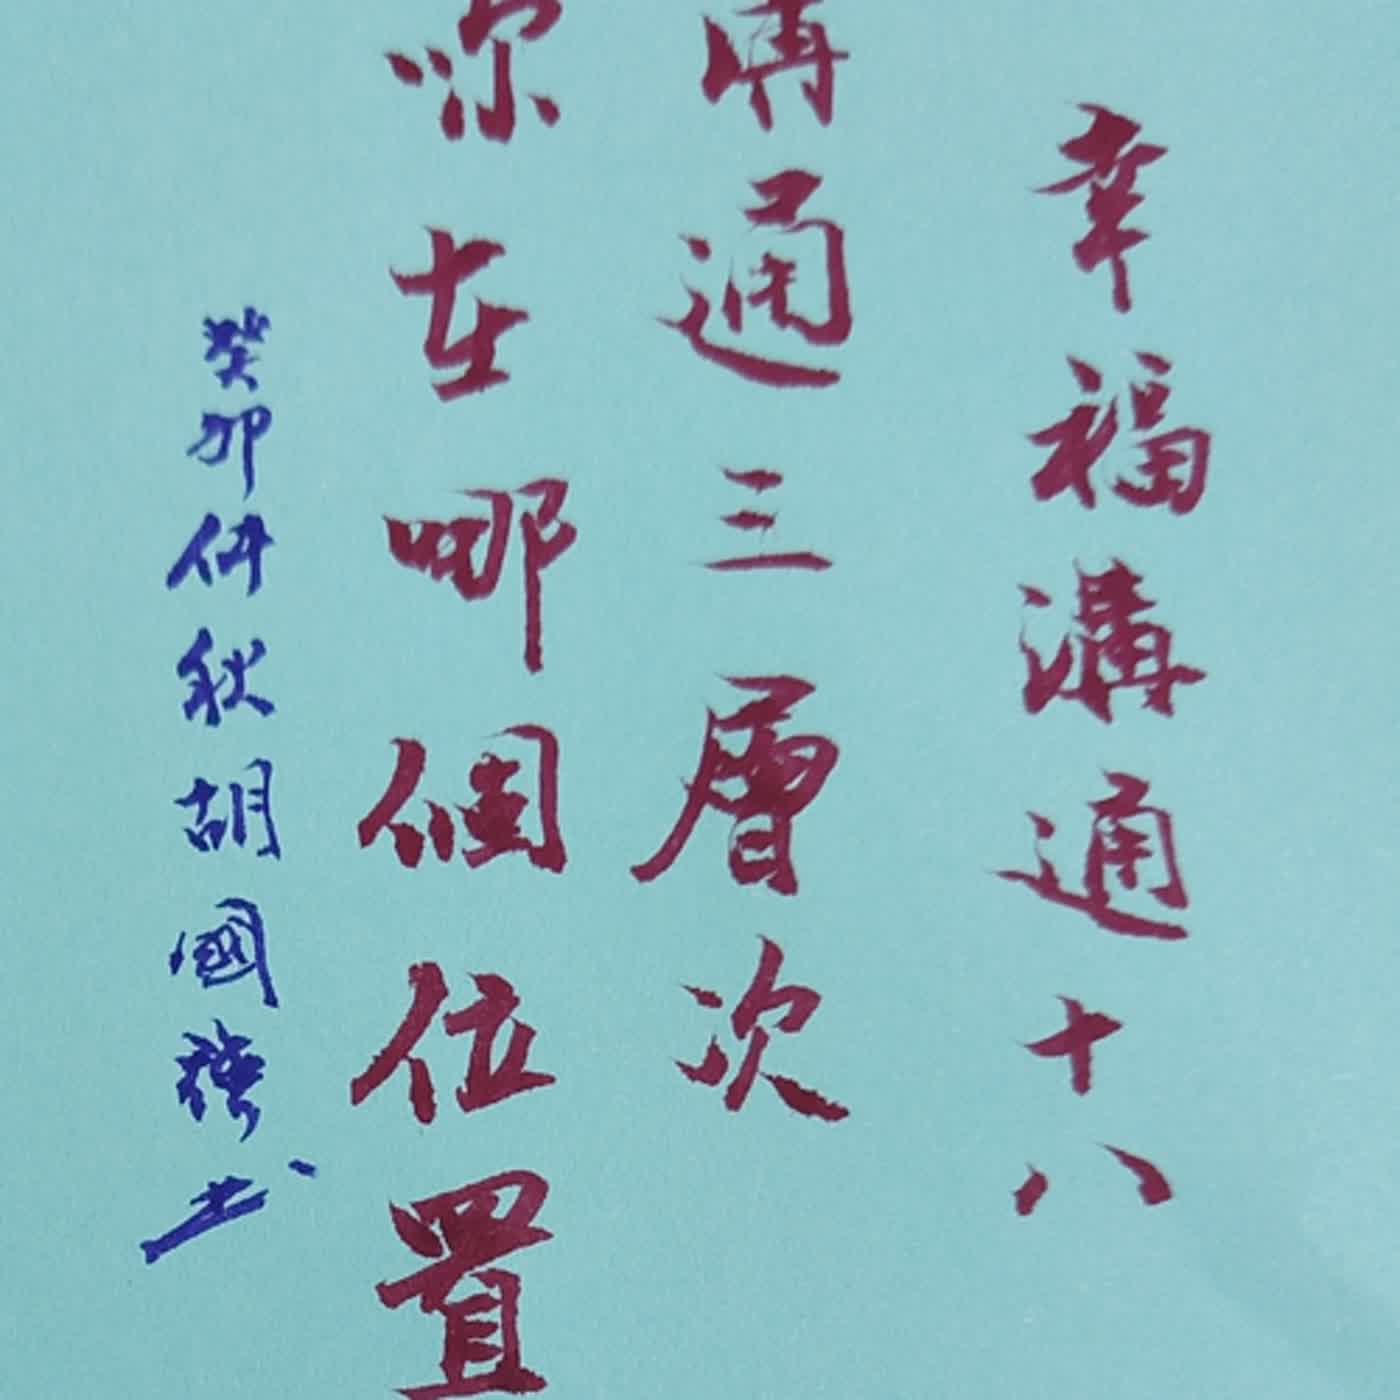 幸福溝通十八
通三層次
在哪個位置
癸卯仲秋胡國书